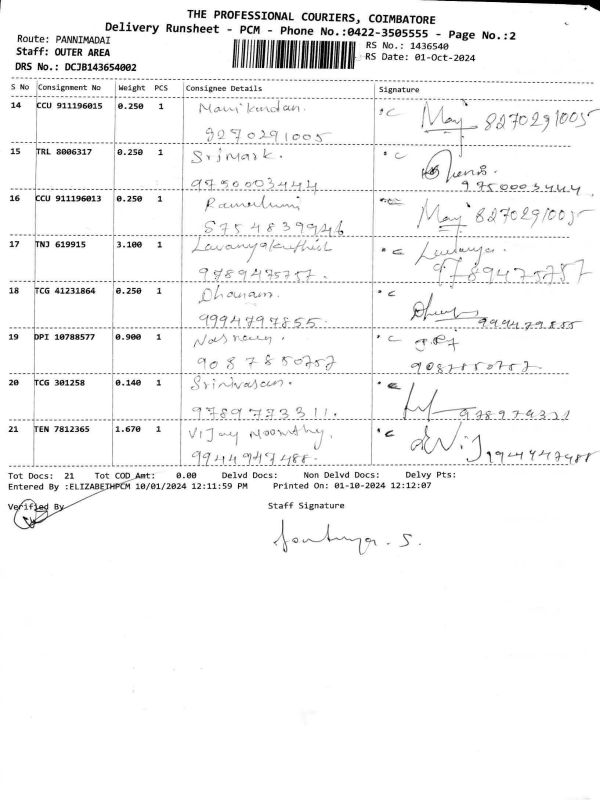 THE PROFESSIONAL COURIERS, COIMBATORE
Delivery Runsheet - PCM - Phone No.:0422-3505555 - Page No.:2
Route: PANNIMADAI
RS No.: 1436540
Staff: OUTER AREA
RS Date: 01-Oct-2024
DRS No.: DCJB143654002
S No Consignment No Weight PCS Consignee Details Signature
14 CCU 911196015 0.250 1 Manikandan.
9270291005 May 8270291005
15 TRL 8006317 0.250 1 SriMark.
9750003444 9750003444
16 CCU 911196013 0.250 1
8754839946 May 8270291005
17 TNJ 619915 3.100 1 Lavanya.
9789475757. 9789475757
18 TCG 41231864 0.250 1 Dhanam.
9994797855. 999479855
19 DPI 10788577 0.900 1
9087850757 9087850757
20 TCG 301258 0.140 1 Srinivasan.
9789773311.
21 TEN 7812365 1.670 1 Vijay Moorthy.
9944947488.
Tot Docs: 21 Tot COD Amt: 0.00 Delvd Docs: Non Delvd Docs: Delvy Pts:
Entered By :ELIZABETHPCM 10/01/2024 12:11:59 PM Printed On: 01-10-2024 12:12:07
Verified By Staff Signature